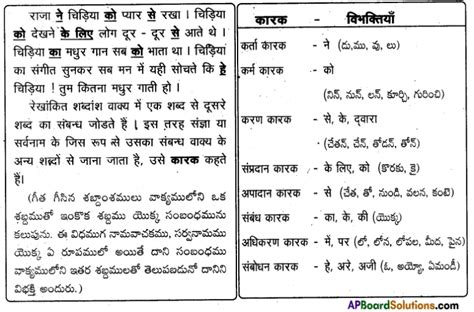 राजा ने चिड़िया को प्यार से रखा । चिड़िया
को देखने के लिए लोग दूर - दूर से आते थे ।
चिड़िया का मधुर गान सब को भाता था । चिड़िया
का संगीत सुनकर सब मन में यही सोचते कि हे
चिड़िया ! तुम कितना मधुर गाती हो ।
रेखांकित शब्दांश वाक्य में एक शब्द से दूसरे
शब्द का संबन्ध जोडते हैं । इस तरह संज्ञा या
सर्वनाम के जिस रूप से उसका संबन्ध वाक्य के
अन्य शब्दों से जाना जाता है, उसे कारक कहते
हैं।
(గీత గీసిన శబ్దాంశములు వాక్యములోని ఒక
శబ్దముతో ఇంకొక శబ్దము యొక్క సంబంధమును
కలుపును. ఈ విధముగ నామవాచకము, సర్వనామము
యొక్క ఏ రూపములో అయితే దాని సంబంధము
వాక్యములోని ఇతర శబ్దములతో తెలుపబడునో దానిని
విభక్తి అందురు.)
कारक - विभक्तियाँ
कर्ता कारक - ने (డు,ము, వు, లు)
कर्म कारक - को
(నిన్, నున్, లన్, కూర్చి, గురించి)
करण कारक - से, के, द्वारा
(చేతన్, చేన్, తోడన్, తోన్)
संप्रदान कारक - के लिए, को (కొరకు, కై)
अपादान कारक - से (చేత, తో, నుండి, వలన, కంటె)
संबंध कारक - का, के, की (యొక్క)
अधिकरण कारक - में, पर (లో, లోన, లోపల, మీద, పైన)
संबोधन कारक - हे, अरे, अजी (ఓ, అయ్యో, ఏమండీ)
APBoardSolutions.com